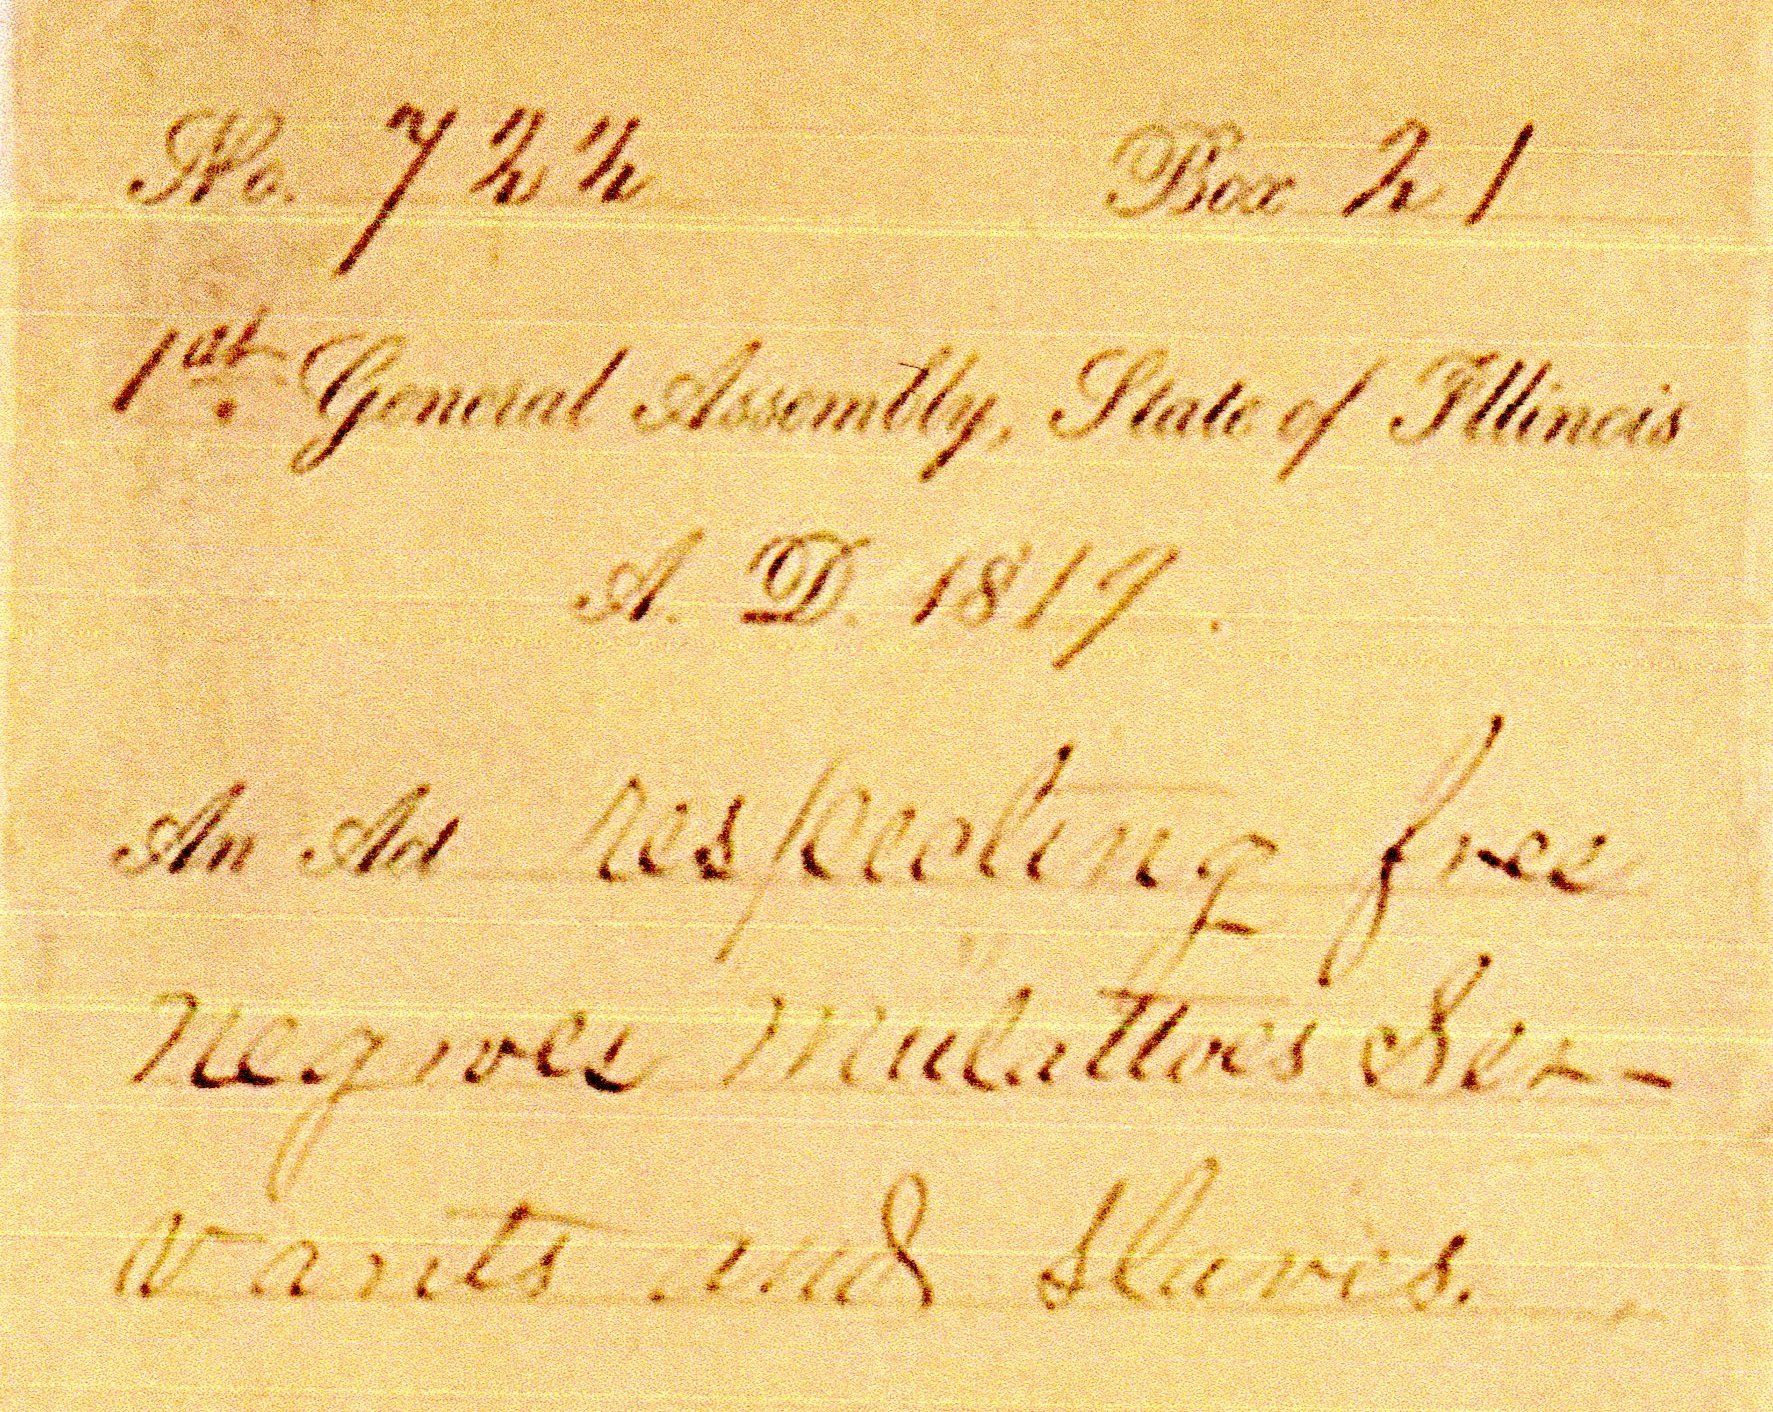 No. 722 Box 21
1st. General Assembly, State of Illinois
A. D. 1819.
An Act respecting free
Negroes Mulattoes Ser-
vants and Slaves.